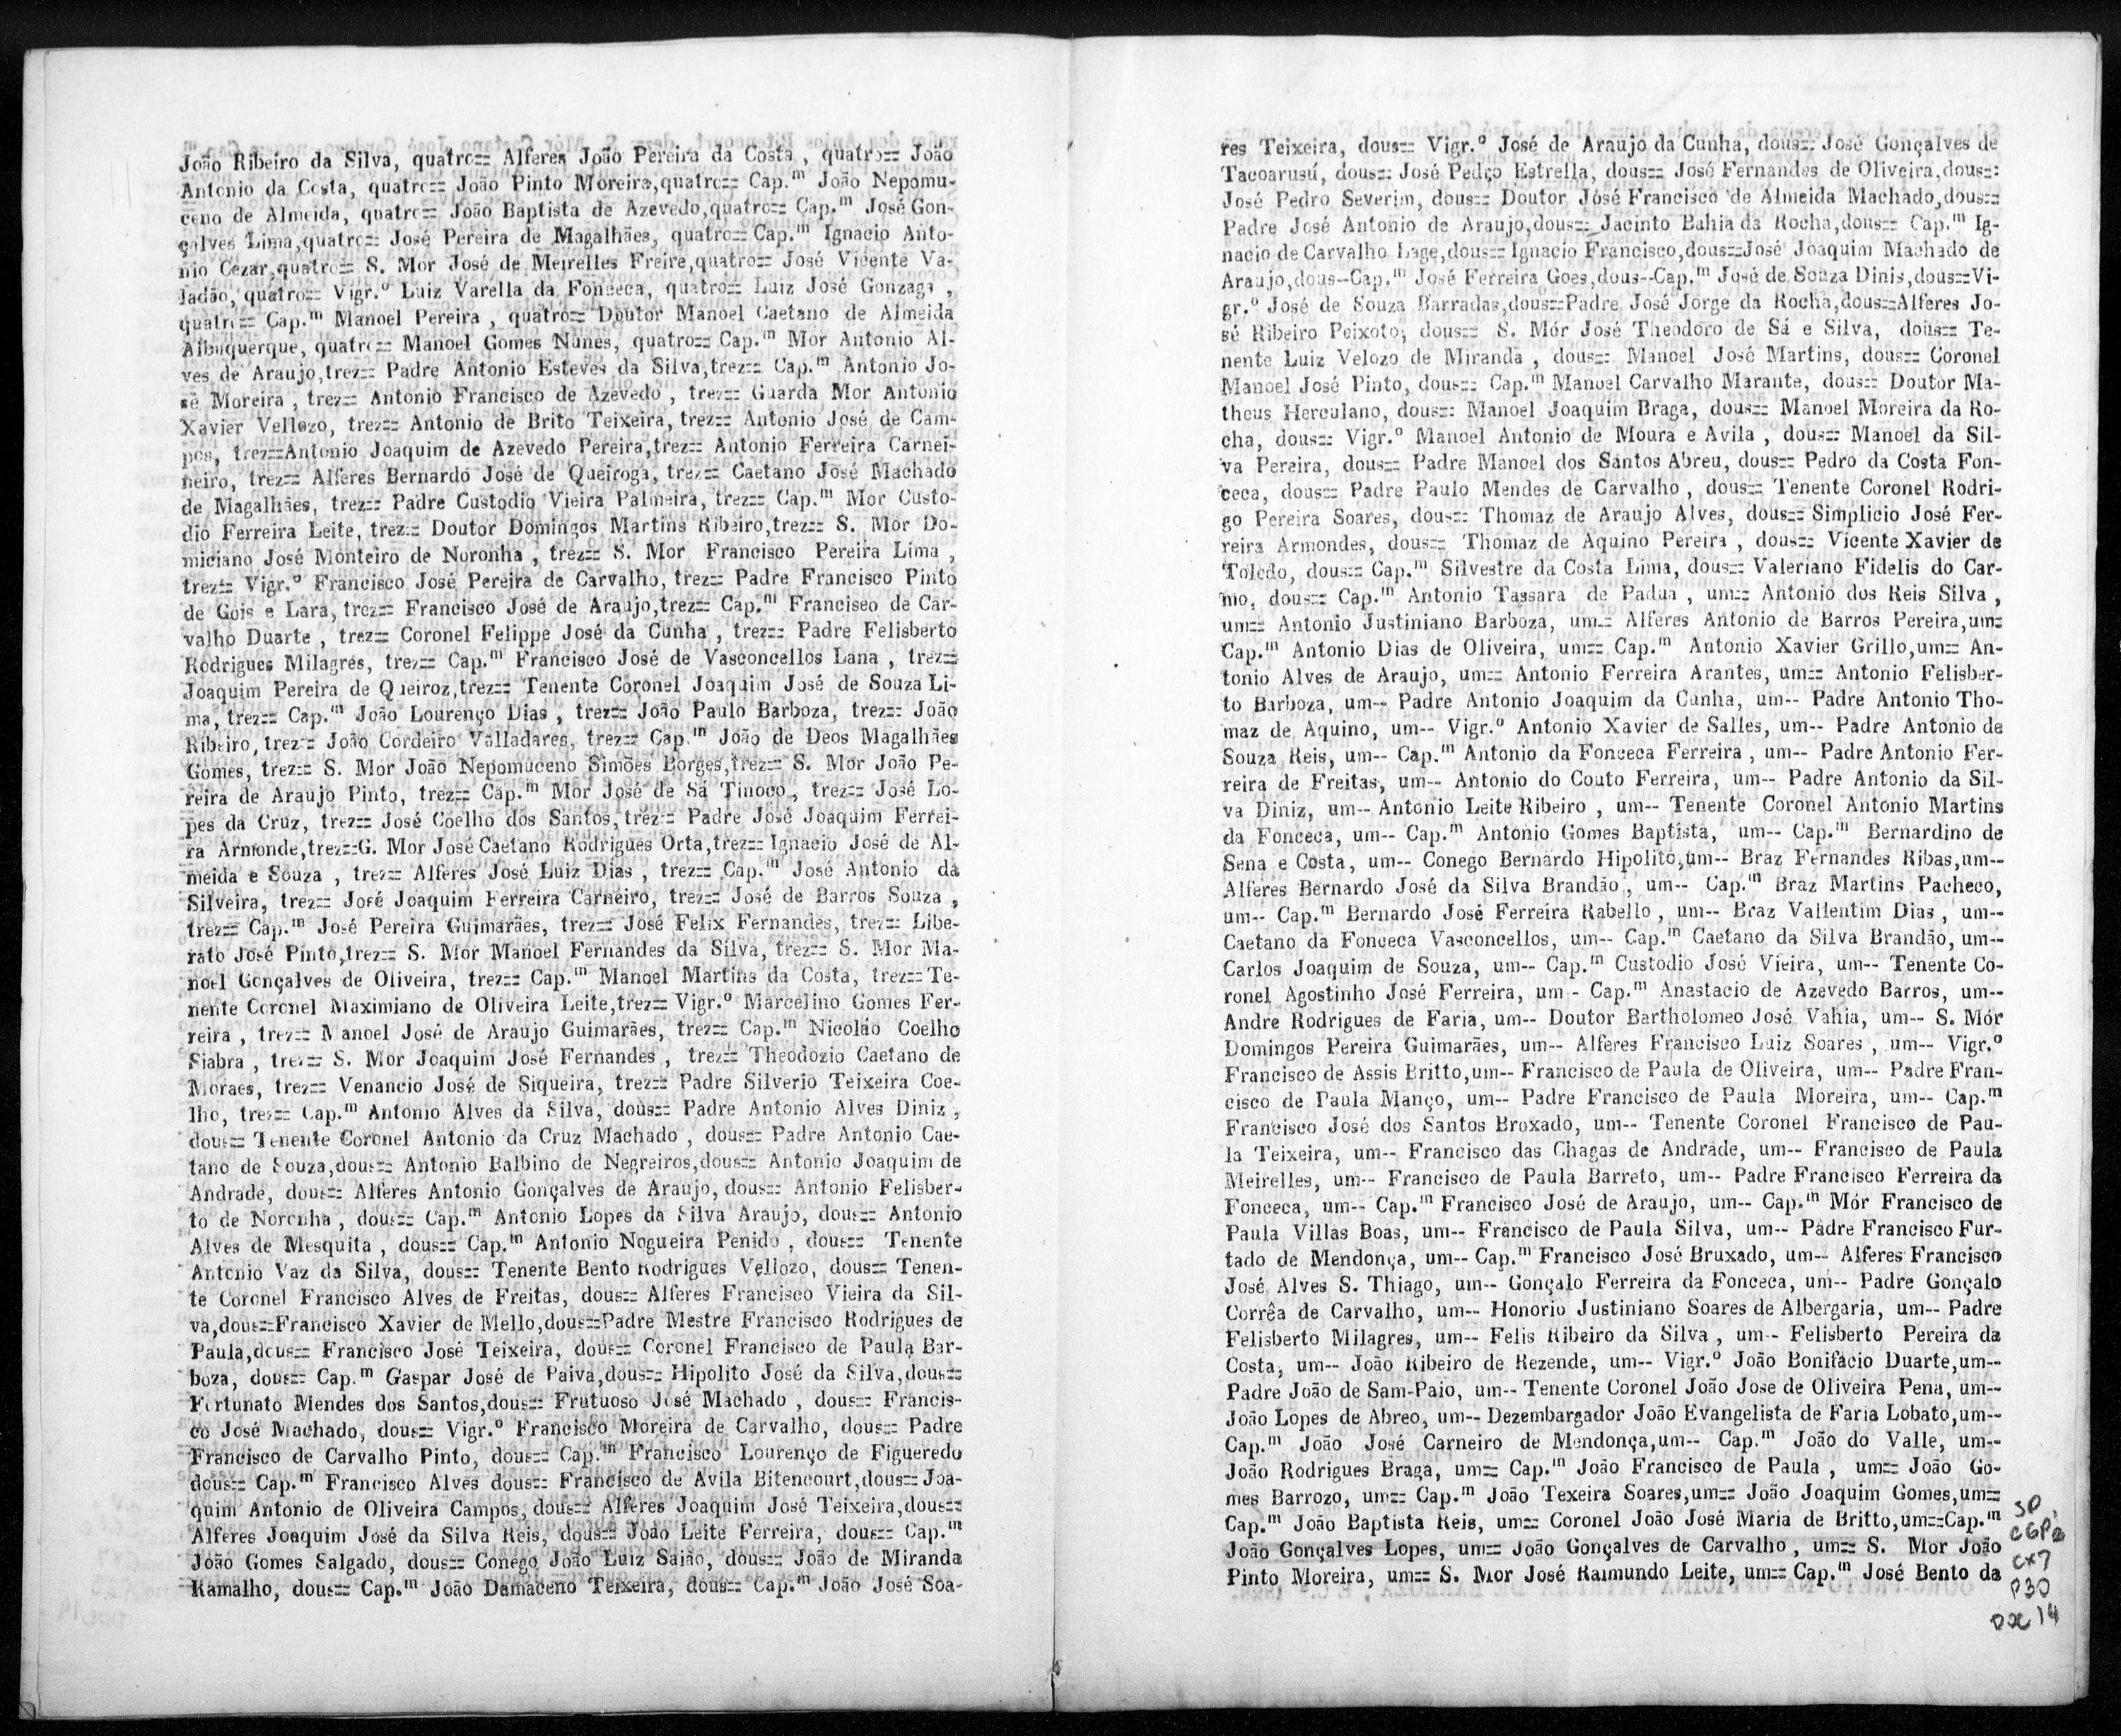 João Ribeiro da Silva, quatro== Alferes João Pereira da Costa, quatro== João
Antonio da Costa, quatro== João Pinto Moreira,quatro== Cap.m João Nepomu-
ceno de Almeida, quatro== João Baptista de Azevedo,quatro== Cap.m José Gon-
çalves Lima,quatro== José Pereira de Magalhães, quatro== Cap.m Ignacio Anto-
nio Cezar,quatro== S. Mor José de Meirelles Freire,quatro== José Vicente Va-
ladão, quatro== Vigr.o Luiz Varella da Fonceca, quatro== Luiz José Gonzaga,
quatro== Cap.m Manoel Pereira, quatro== Doutor Manoel Caetano de Almeida
Albuquerque, quatro== Manoel Gomes Nunes, quatro== Cap.m Mor Antonio Al-
ves de Araujo,trez== Padre Antonio Esteves da Silva,trez== Cap.m Antonio Jo-
sé Moreira, trez== Antonio Francisco de Azevedo, trez== Guarda Mor Antonio
Xavier Vellozo, trez== Antonio de Brito Teixeira, trez== Antonio José de Cam-
pos, trez==Antonio Joaquim de Azevedo Pereira,trez== Antonio Ferreira Carnei-
neiro, trez== Alferes Bernardo José de Queiroga, trez== Caetano José Machado
de Magalhães, trez== Padre Custodio Vieira Palmeira, trez== Cap.m Mor Custo-
dio Ferreira Leite, trez== Doutor Domingos Martins Ribeiro,trez== S. Mor Do-
miciano José Monteiro de Noronha, trez== S. Mor Francisco Pereira Lima,
trez== Vigr.o Francisco José Pereira de Carvalho, trez== Padre Francisco Pinto
de Gois e Lara, trez== Francisco José de Araujo,trez== Cap.m Franciseo de Car-
valho Duarte, trez== Coronel Felippe José da Cunha, trez== Padre Felisberto
Rodrigues Milagres, trez== Cap.m Francisco José de Vasconcellos Lana, trez==
Joaquim Pereira de Queiroz,trez== Tenente Coronel Joaquim José de Souza Li-
ma, trez== Cap.m João Lourenço Dias, trez== João Paulo Barboza, trez== João
Ribeiro, trez== João Cordeiro Valladares, trez== Cap.m João de Deos Magalhães
Gomes, trez== S. Mor João Nepomuceno Simões Borges,trez== S. Mor João Pe-
reira de Araujo Pinto, trez== Cap.m Mor José de Sá Tinoco, trez== José Lo-
pes da Cruz, trez== José Coelho dos Santos, trez== Padre José Joaquim Ferrei-
ra Armonde,trez==G. Mor José Caetano Rodrigues Orta,trez== Ignacio José de Al-
meida e Souza, trez== Alferes José Luiz Dias, trez== Cap.m José Antonio da
Silveira, trez== José Joaquim Ferreira Carneiro, trez== José de Barros Souza,
trez== Cap.m José Pereira Guimarães, trez== José Felix Fernandes, trez== Libe-
rato José Pinto,trez== S. Mor Manoel Fernandes da Silva, trez== S. Mor Ma-
noel Gonçalves de Oliveira, trez== Cap.m Manoel Martins da Costa, trez== Te-
nente Coronel Maximiano de Oliveira Leite,trez== Vigr.o Marcelino Gomes Fer-
reira, trez== Manoel José de Araujo Guimarães, trez== Cap.m Nicoláo Coelho
Siabra, trez== S. Mor Joaquim José Fernandes, trez== Theodozio Caetano de
Moraes, trez== Venancio José de Siqueira, trez== Padre Silverio Teixeira Coe-
lho, trez== Cap.m Antonio Alves da Silva, dous== Padre Antonio Alves Diniz,
dous== Tenente Coronel Antonio da Cruz Machado, dous== Padre Antonio Cae-
tano de Souza,dous== Antonio Balbino de Negreiros,dous== Antonio Joaquim de
Andrade, dous== Alferes Antonio Gonçalves de Araujo, dous== Antonio Felisber-
to de Noronha, dous== Cap.m Antonio Lopes da Silva Araujo, dous== Antonio
Alves de Mesquita, dous== Cap.m Antonio Nogueira Penido, dous== Tenente
Antonio Vaz da Silva, dous== Tenente Bento Rodrigues Vellozo, dous== Tenen-
te Coronel Francisco Alves de Freitas, dous== Alferes Francisco Vieira da Sil-
va,dous==Francisco Xavier de Mello,dous==Padre Mestre Francisco Rodrigues de
Paula,dous== Francisco José Teixeira, dous== Coronel Francisco de Paula Bar-
boza, dous== Cap.m Gaspar José de Paiva,dous== Hipolito José da Silva,dous==
Fortunato Mendes dos Santos,dous== Frutuoso José Machado, dous== Francis-
co José Machado, dous== Vigr.o Francisco Moreira de Carvalho, dous== Padre
Francisco de Carvalho Pinto, dous== Cap.m Francisco Lourenço de Figueredo
dous== Cap.m Francisco Alves dous== Francisco de Avila Bitencourt,dous== Joa-
quim Antonio de Oliveira Campos, dous== Alferes Joaquim José Teixeira,dous==
Alferes Joaquim José da Silva Reis, dous== João Leite Ferreira, dous== Cap.m
João Gomes Salgado, dous== Conego João Luiz Saião, dous== João de Miranda
Ramalho, dous== Cap.m João Damaceno Teixeira, dous== Cap.m João José Soa-
res Teixeira, dous== Vigr.o José de Araujo da Cunha, dous== José Gonçalves de
Tacoarusú, dous== José Pedro Estrella, dous== José Fernandes de Oliveira,dous==
José Pedro Severim, dous== Doutor José Francisco de Almeida Machado,dous==
Padre José Antonio de Araujo,dous== Jacinto Bahia da Rocha,dous== Cap.m Ig-
nacio de Carvalho Lage,dous== Ignacio Francisco,dous==José Joaquim Machado de
Araujo,dous--Cap.m José Ferreira Goes,dous--Cap.m José de Souza Dinis,dous==Vi-
gr.o José de Souza Barradas,dous==Padre José Jorge da Rocha,dous==Alferes Jo-
sé Ribeiro Peixoto, dous== S. Mór José Theodoro de Sá e Silva, dous== Te-
nente Luiz Velozo de Miranda, dous== Manoel José Martins, dous== Coronel
Manoel José Pinto, dous== Cap.m Manoel Carvalho Marante, dous== Doutor Ma-
theus Herculano, dous== Manoel Joaquim Braga, dous== Manoel Moreira da Ro-
cha, dous== Vigr.o Manoel Antonio de Moura e Avila, dous== Manoel da Sil-
va Pereira, dous== Padre Manoel dos Santos Abreu, dous== Pedro da Costa Fon-
ceca, dous== Padre Paulo Mendes de Carvalho, dous== Tenente Coronel Rodri-
go Pereira Soares, dous== Thomaz de Araujo Alves, dous== Simplicio José Fer-
reira Armondes, dous== Thomaz de Aquino Pereira, dous== Vicente Xavier de
Toledo, dous== Cap.m Silvestre da Costa Lima, dous== Valeriano Fidelis do Car-
mo, dous== Cap.m Antonio Tassara de Padua, um== Antonio dos Reis Silva,
um== Antonio Justiniano Barboza, um== Alferes Antonio de Barros Pereira,um=
Cap.m Antonio Dias de Oliveira, um== Cap.m Antonio Xavier Grillo,um== An-
tonio Alves de Araujo, um== Antonio Ferreira Arantes, um== Antonio Felisber-
to Barboza, um-- Padre Antonio Joaquim da Cunha, um-- Padre Antonio Tho-
maz de Aquino, um-- Vigr.o Antonio Xavier de Salles, um-- Padre Antonio de
Souza Reis, um-- Cap.m Antonio da Fonceca Ferreira, um-- Padre Antonio Fer-
reira de Freitas, um-- Antonio do Couto Ferreira, um-- Padre Antonio da Sil-
va Diniz, um-- Antonio Leite Ribeiro, um-- Tenente Coronel Antonio Martins
da Fonceca, um-- Cap.m Antonio Gomes Baptista, um-- Cap.m Bernardino de
Sena e Costa, um-- Conego Bernardo Hipolito,um-- Braz Fernandes Ribas,um--
Alferes Bernardo José da Silva Brandão, um-- Cap.m Braz Martins Pacheco,
um-- Cap.m Bernardo José Ferreira Rabello, um-- Braz Vallentim Dias, um--
Caetano da Fonceca Vasconcellos, um-- Cap.m Caetano da Silva Brandão, um--
Carlos Joaquim de Souza, um-- Cap.m Custodio José Vieira, um-- Tenente Co-
ronel Agostinho José Ferreira, um-- Cap.m Anastacio de Azevedo Barros, um--
Andre Rodrigues de Faria, um-- Doutor Bartholomeo José Vahia, um-- S. Mór
Domingos Pereira Guimarães, um-- Alferes Francisco Luiz Soares, um-- Vigr.o
Francisco de Assis Britto,um-- Francisco de Paula de Oliveira, um-- Padre Fran-
cisco de Paula Manço, um-- Padre Francisco de Paula Moreira, um-- Cap.m
Francisco José dos Santos Broxado, um-- Tenente Coronel Francisco de Pau-
la Teixeira, um-- Francisco das Chagas de Andrade, um-- Francisco de Paula
Meirelles, um-- Francisco de Paula Barreto, um-- Padre Francisco Ferreira da
Fonceca, um-- Cap.m Francisco José de Araujo, um-- Cap.m Mór Francisco de
Paula Villas Boas, um-- Francisco de Paula Silva, um-- Padre Francisco Fur-
tado de Mendonça, um-- Cap.m Francisco José Bruxado, um-- Alferes Francisco
José Alves S. Thiago, um-- Gonçalo Ferreira da Fonceca, um-- Padre Gonçalo
Corrêa de Carvalho, um-- Honorio Justiniano Soares de Albergaria, um-- Padre
Felisberto Milagres, um-- Felis Ribeiro da Silva, um-- Felisberto Pereira da
Costa, um-- João Ribeiro de Rezende, um-- Vigr.o João Bonifacio Duarte,um--
Padre João de Sam-Paio, um-- Tenente Coronel João Jose de Oliveira Pena, um--
João Lopes de Abreo, um-- Dezembargador João Evangelista de Faria Lobato,um--
Cap.m João José Carneiro de Mendonça,um-- Cap.m João do Valle, um--
João Rodrigues Braga, um== Cap.m João Francisco de Paula, um== João Go-
mes Barrozo, um== Cap.m João Texeira Soares,um== João Joaquim Gomes,um==
Cap.m João Baptista Reis, um== Coronel João José Maria de Britto,um==Cap.m
João Gonçalves Lopes, um== João Gonçalves de Carvalho, um== S. Mor João
Pinto Moreira, um== S. Mor José Raimundo Leite, um== Cap.m José Bento da
SP
Cx7
P30